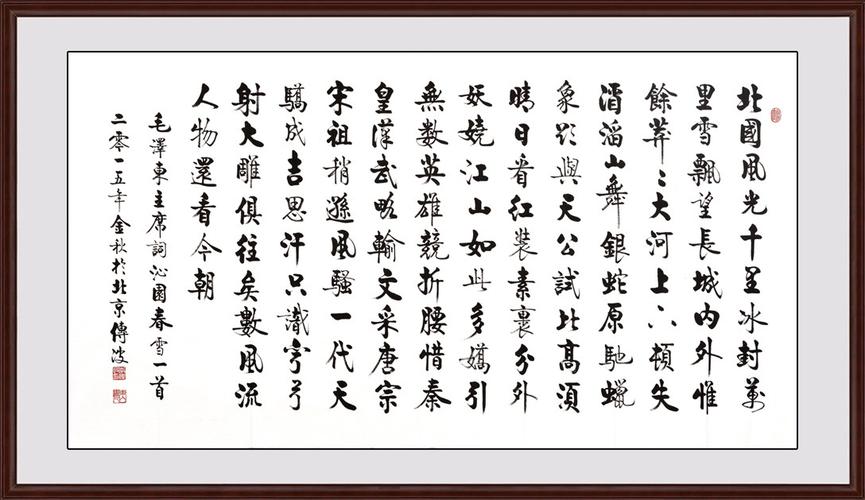 北國風光千里冰封萬
里雪飄望長城內外惟
餘莽〻大河上下頓失
滔滔山舞銀蛇原馳蠟
象欲與天公試比高須
晴日看紅裝素裹分外
妖嬈江山如此多嬌引
無數英雄競折腰惜秦
皇漢武略輸文采唐宗
宋祖稍遜風騷一代天
驕成吉思汗只識彎弓
射大雕俱往矣數風流
人物還看今朝
毛澤東主席詞沁園春雪一首
二零一五年金秋於北京傅波